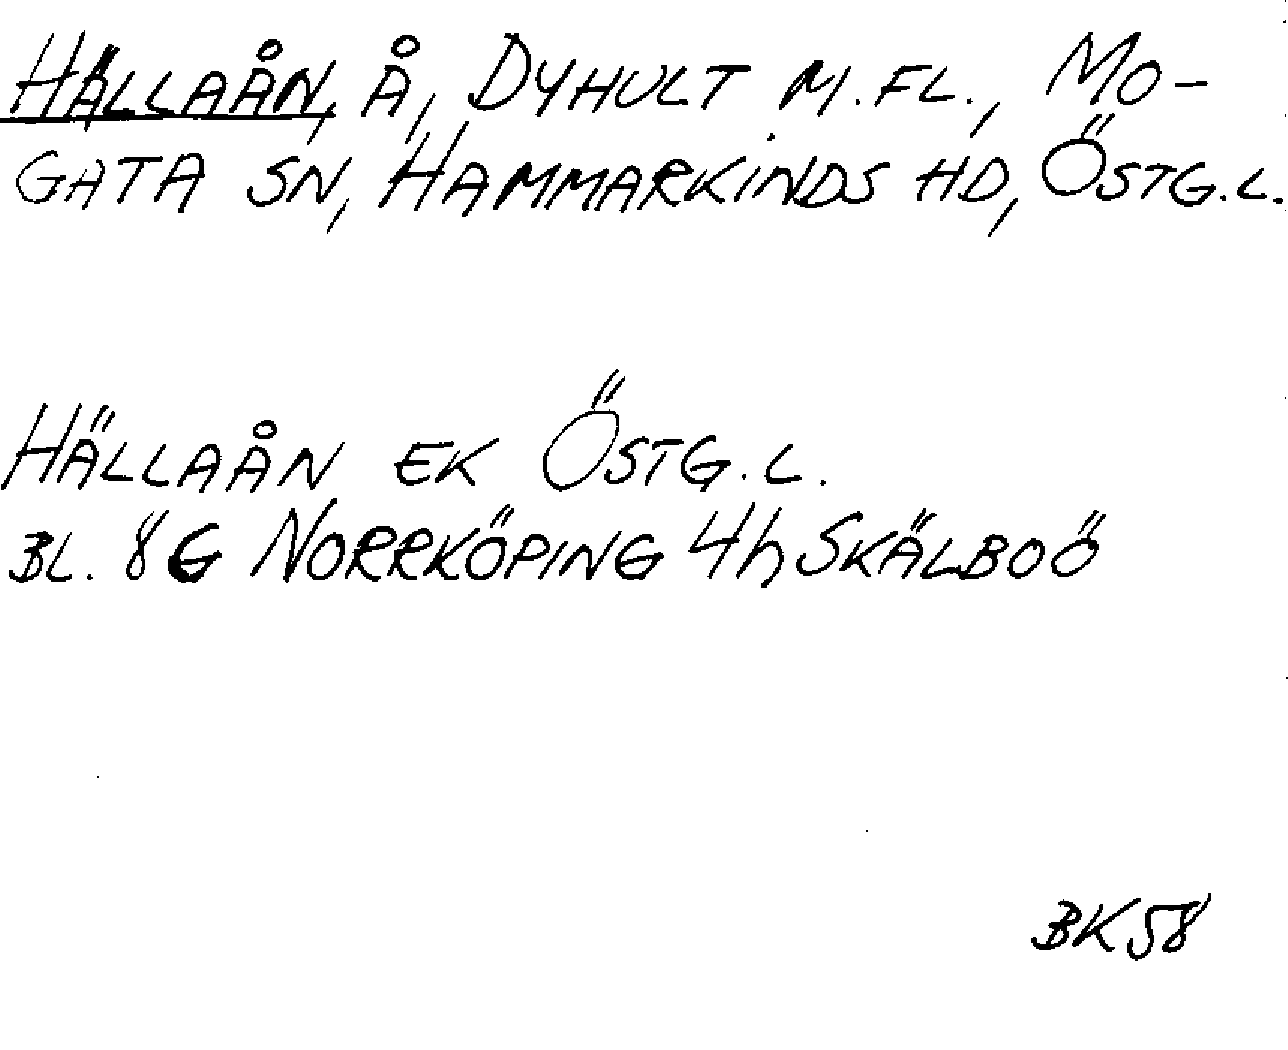 HÄLLAÅN, Å, DYHULT M.FL., MO-
GATA SN, HAMMARKINDS HD, ÖSTG.L.
HÄLLAÅN EK ÖSTG.L.
BL. 8G NORRKÖPING 4h SKÄLBOÖ
BK58